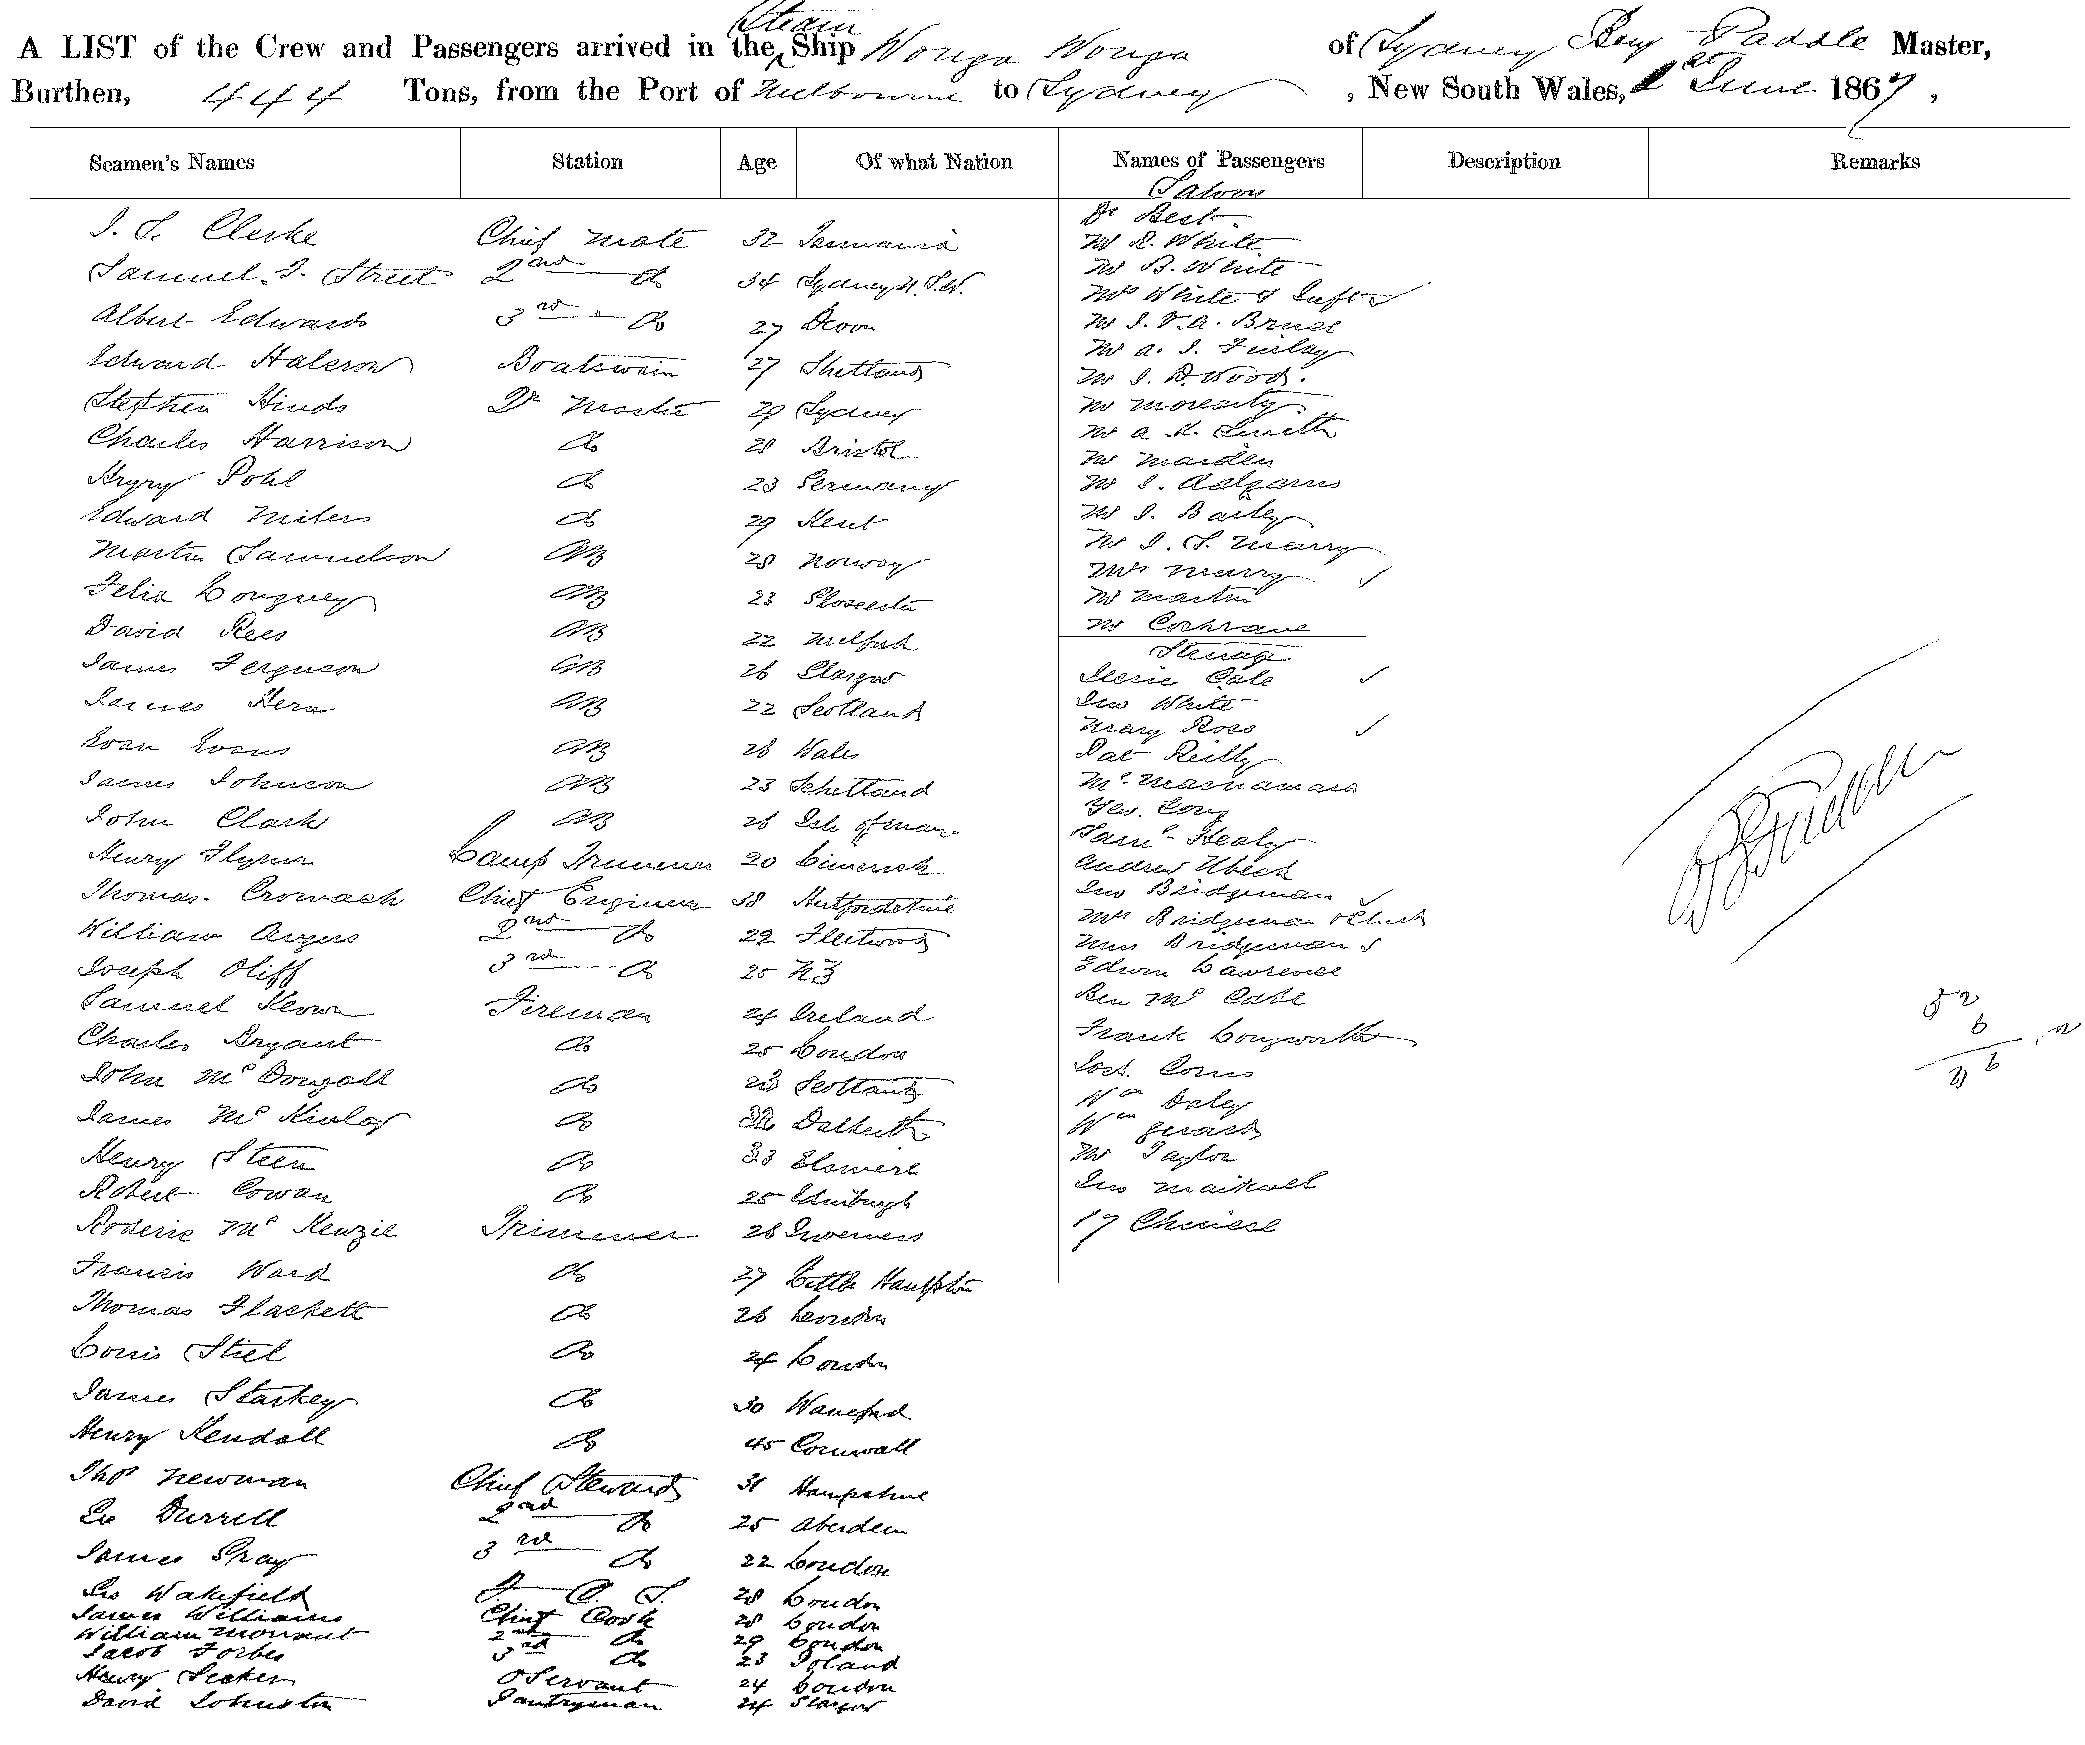 A LIST of the Crew and Passengers arrived in the Steam Ship Wonga Wonga of Sydney Paddle Master,
Burthen, 444 Tons, from the Port of Melbourne to Sydney, New South Wales, June 1867,
Seamen's Names Station Age Of what Nation Names of Passengers Description Remarks
J. S. Clerke Chief Mate 32 Tasmania
Samuel J. Street 2nd do 34 Sydney N.S.W.
Albert Edwards 3rd do 27 Devon
Edward Halcrow Boatswain 27 Shetland
Stephen Hinds Qr Master 29 Sydney
Charles Harrison do 28 Bristol
Pohl do 23 Germany
Edward Miles do 29 Kent
Martin Samuelson AB 28 Norway
Felix Longuey AB 23 Gloucester
David Rees AB 22 Milford
James Ferguson AB 26 Glasgow
James Kerr AB 22 Scotland
Evan Evans AB 26 Wales
James Johnson AB 23 Schetland
John Clark AB 26 Isle of Man
Henry Flynn Lamp Trimmer 20 Limerick
Thomas Cromack Chief Engineer 38 Hertfordshire
William Angus 2nd do 29 Fleetwood
Joseph Oliff 3rd do 25 NZ
Samuel Keown Fireman 24 Ireland
Charles Bryant do 25 London
John McDougall do 23 Scotland
James McKinlay do Dalkeith
Henry Steen do 33
Robert Cowan do 25 Edinburgh
Roderic McKenzie Trimmer 26 Inverness
Francis Ward do 27 Little Hampton
Thomas Flackett do 26 London
Louis Stiel do 24 London
James Starkey do 30
Henry Kendall do 45 Cornwall
Thos Newman Chief Steward 31 Hampshire
Geo Durrell 2nd do 25 Aberdeen
James Gray 3rd do 22 London
Geo Wakefield 28 London
James Williams Chief Cook 28 London
William Morrant 2nd do 29 London
Jacob Forbes 3rd do 23 Poland
Henry Secker O Servant 24 London
David Johnston Pantryman 24 Glasgow
Saloon
Dr Best
Mr R. White
Mr B. White
Mrs White & Infts
Mr J. V. A. Bruce
Mr A. J. Finlay
Mr J. D. Wood.
Mr Moresity
Mr A. H. Smith
Mr Maiden
Mr J. Adgarms
Mr J. Bailey
Mr J. S. Marry
Mrs Marry
Mr Martin
Mr Cochrane
Steerage
Cale
Jno White
Mary Ross
Pat Reilly
Mc Machamara
Geo. Long
Saml Healy
Andrew
Jno Bridgeman
Mrs Bridgeman & Child
Miss Bridgeman
Edwin Lawrence
Ben McCabe
Frank Longworth
Corns
Wm Daley
Wm
Mr Taylor
Jno Maxwell
17 Chinese
52
6